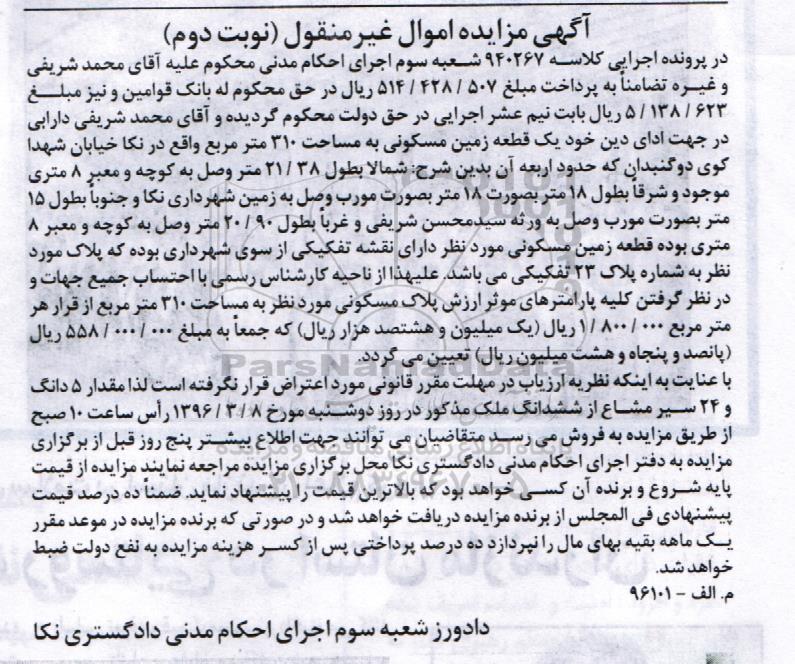 آگهی مزایده اموال غیر منقول (نوبت دوم)
در پرونده اجرایی کلاسه ۹۴۰۲۶۷ شعبه سوم اجرای احکام مدنی محکوم علیه آقای محمد شریفی
و غیره تضامناً به پرداخت مبلغ ۵۰۷ / ۴۲۸ / ۵۱۴ ریال در حق محکوم له بانک قوامین و نیز مبلغ
۶۲۳ / ۱۳۸ / ۵ ریال بابت نیم عشر اجرایی در حق دولت محکوم گردیده و آقای محمد شریفی دارابی
در جهت ادای دین خود یک قطعه زمین مسکونی به مساحت ۳۱۰ متر مربع واقع در نکا خیابان شهدا
کوی دوگنبدان که حدود اربعه آن بدین شرح: شمالا بطول ۳۸ / ۲۱ متر وصل به کوچه و معبر ۸ متری
موجود و شرقاً بطول ۱۸ متر بصورت ۱۸ متر بصورت مورب وصل به زمین شهرداری نکا و جنوباً بطول ۱۵
متر بصورت مورب وصل به ورثه سیدمحسن شریفی و غرباً بطول ۹۰ / ۲۰ متر وصل به کوچه و معبر ۸
متری بوده قطعه زمین مسکونی مورد نظر دارای نقشه تفکیکی از سوی شهرداری بوده که پلاک مورد
نظر به شماره پلاک ۲۳ تفکیکی می باشد. علیهذا از ناحیه کارشناس رسمی با احتساب جمیع جهات و
در نظر گرفتن کلیه پارامترهای موثر ارزش پلاک مسکونی مورد نظر به مساحت ۳۱۰ متر مربع از قرار هر
متر مربع ۰۰۰ / ۸۰۰ / ۱ ریال (یک میلیون و هشتصد هزار ریال) که جمعاً به مبلغ ۰۰۰ / ۰۰۰ / ۵۵۸ ریال
(پانصد و پنجاه و هشت میلیون ریال) تعیین می گردد.
با عنایت به اینکه نظریه ارزیاب در مهلت مقرر قانونی مورد اعتراض قرار نگرفته است لذا مقدار ۵ دانگ
و ۲۴ سیر مشاع از ششدانگ ملک مذکور در روز دوشنبه مورخ ۸ / ۳ / ۱۳۹۶ رأس ساعت ۱۰ صبح
از طریق مزایده به فروش می رسد متقاضیان می توانند جهت اطلاع بیشتر پنج روز قبل از برگزاری
مزایده به دفتر اجرای احکام مدنی دادگستری نکا محل برگزاری مزایده مراجعه نمایند مزایده از قیمت
پایه شروع و برنده آن کسی خواهد بود که بالاترین قیمت را پیشنهاد نماید. ضمناً ده درصد قیمت
پیشنهادی فی المجلس از برنده مزایده دریافت خواهد شد و در صورتی که برنده مزایده در موعد مقرر
یک ماهه بقیه بهای مال را نپردازد ده درصد پرداختی پس از کسر هزینه مزایده به نفع دولت ضبط
خواهد شد.
م. الف - ۹۶۱۰۱
دادورز شعبه سوم اجرای احکام مدنی دادگستری نکا
ParsNamadData
پایگاه اطلاع رسانی مناقصه و مزایده